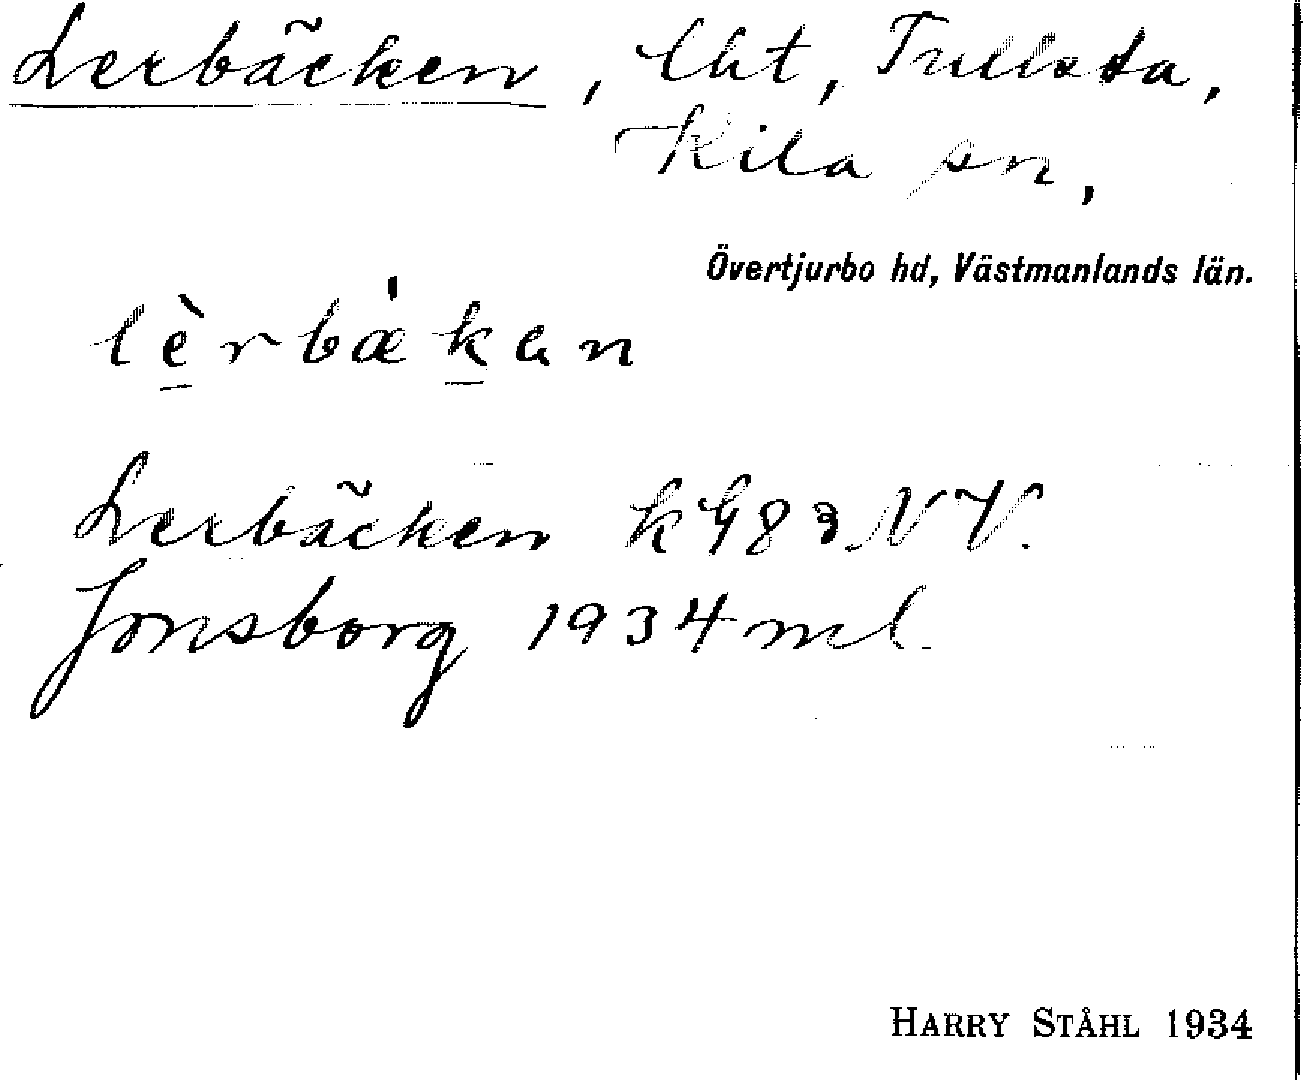 Lerbäcken, lht, Tullsta,
Kila sn,
Övertjurbo hd, Västmanlands län.
lèrbækan
Lerbäcken k G 83 NV.
Jonsborg 1934 ml.
HARRY STÅHL 1934